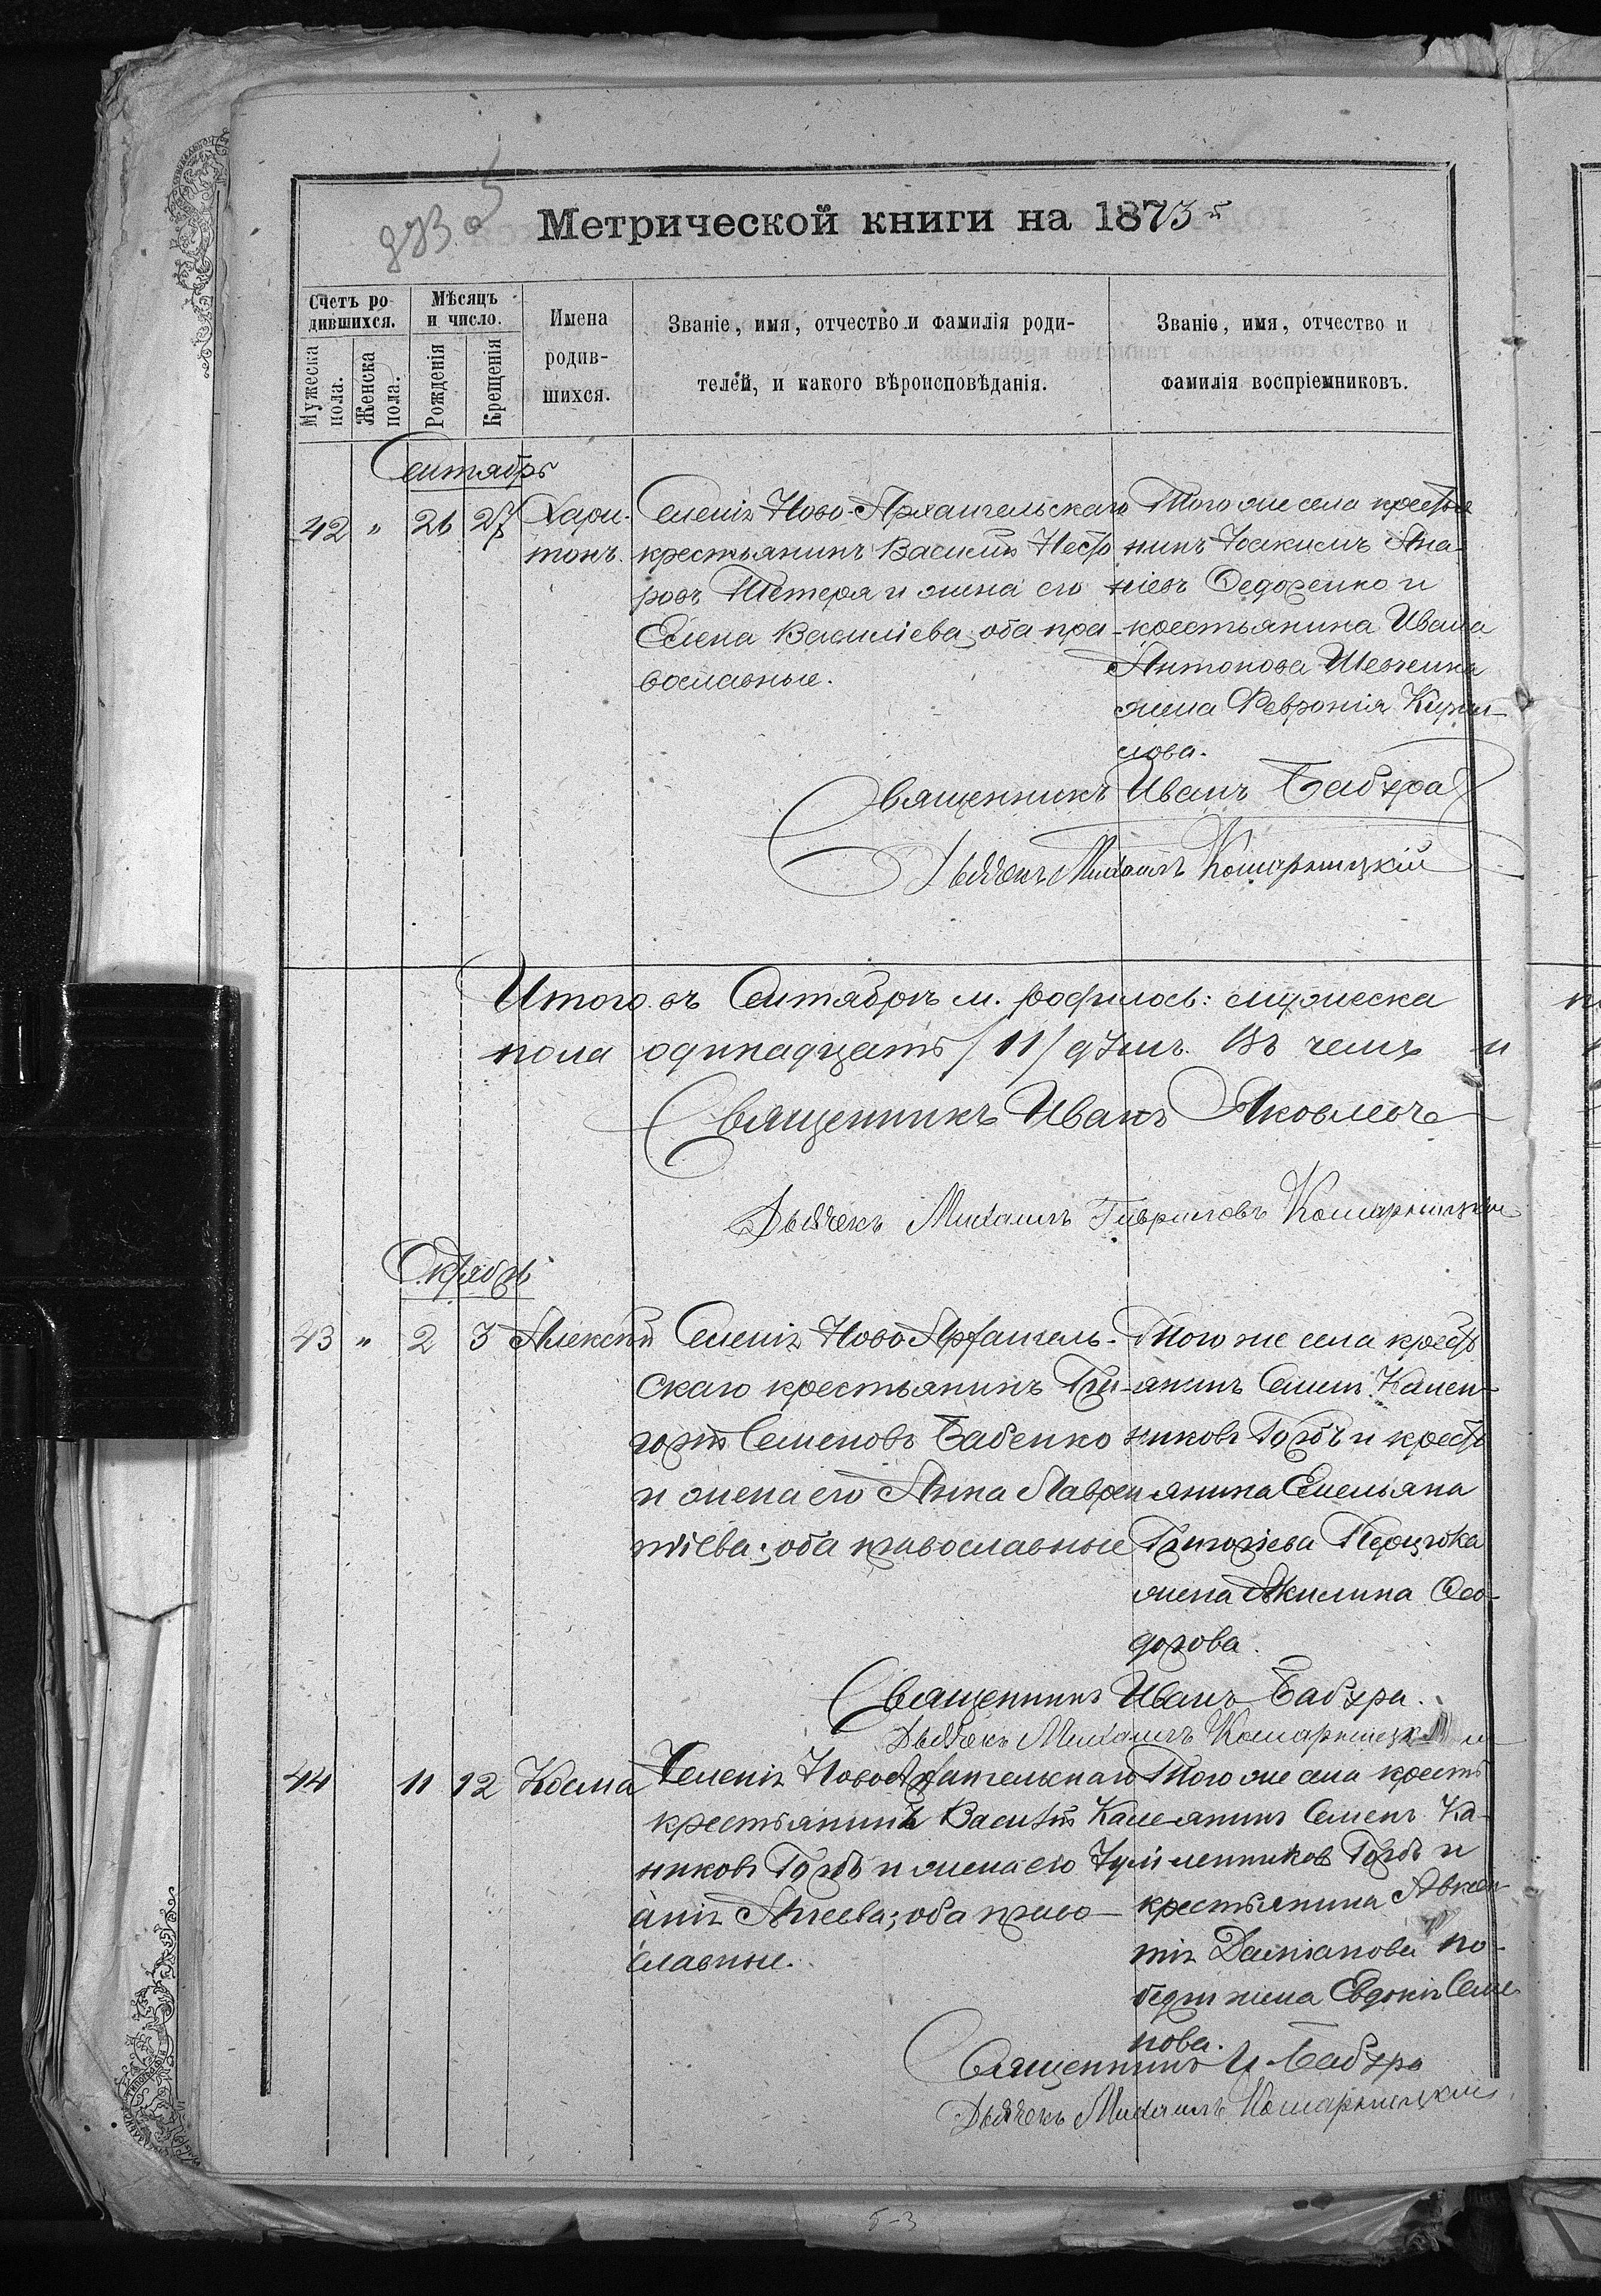 Метрической книги на 1873й
Счетъ родившихся.
Мужеска пола.
Женска пола.
Мѣсяцъ и число.
Рожденія
Крещенія
Имена родившихся.
Званіе, имя, отчество и фамилія роди-
телей, и какого вѣроисповѣданія.
Званіе, имя, отчество и
фамилія воспріемниковъ.
Сентябрь
42 " 26 27 Хари-
тонъ.
Селенія Ново-Архангельскаго
крестьянинъ Василій Несто
ровъ Тетеря и жена его
Елена Василіева, оба пра-
вославные.
Того же села крестья
нинъ Іоакимъ Ана-
ніевъ Федоренко и
крестьянина Ивана
Антонова Шевченка
жена Февронія Кирил-
лова.
Священникъ Иванъ Бабура
Дьячекъ Михаилъ Комарницкій
Итого въ Сентябрѣ м. родилось: мужеска
пола одинадцать /11/ дѣтей. Въ чемъ и
Священникъ Иванъ Яковлевъ
Дьячекъ Михаилъ Гавриловъ Комарницкій
Октябрь
43 " 2 3 Алексѣй
Селенія Ново Архангель-
скаго крестьянинъ Гри-
горій Семеновъ Бабенко
и жена его Анна Лаврен
тіева; оба православные
Того же села кресть
янинъ Семенъ Камен-
никовъ Горбъ и кресть
янина Емельяна
Григоріева
жена Акилина Фео-
дорова.
Священникъ Иванъ Бабура.
Дьячекъ Михаилъ Комарницкій
44 11 12 Косма
Селенія Новоархангельскаго
крестьянинъ Василій Каме
никовъ Горбъ и жена его Іулі
анія Агеева; оба право
славные.
Того же села кресть
янинъ Семенъ Ка-
менниковъ Горбъ и
крестьянина Авксен
тія Даміанова По-
бедри жена Евдокія Семе
нова.
Священникъ И. Бабура
Дьячекъ Михаилъ Комарницкій